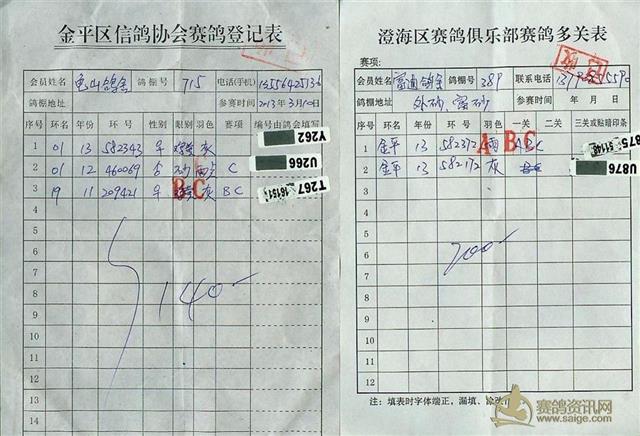 金平区信鸽协会赛鸽登记表
会员姓名 鸽棚号 715 电话(手机)
鸽棚地址 参赛时间 2013年3月10日
序号 环名 年份 环号 性别 眼别 羽色 赛项 编号由鸽会填写
1 01 13 582343 灰 Y262
2 01 12 460069 C U266
3 19 11 209421 灰 BC T267
B C
4
5
6
7
8
9
10
11
12
13
14
140-
澄海区赛鸽俱乐部赛鸽多关表
赛项:
会员姓名 富通鸽舍 鸽棚号 389 联系电话
鸽棚地址 外砂、富砂 参赛时间 年 月 日
序号 环名 年份 环号 羽色 一关 二关 三关或贴暗印条
1 金平 13 582372 雨 ABC
A B C
2 金平 13 582172 灰 U876
3
4
5
6
7
8
9
10
11
12
200-
注:填表时字体端正,漏填、涂改
赛鸽资讯网
www.saige.com